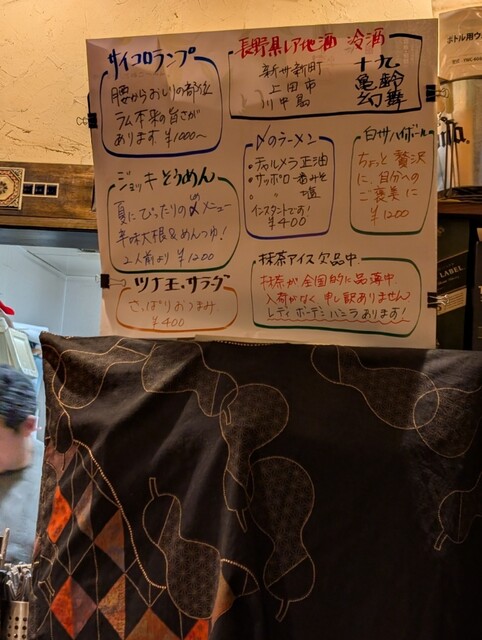 サイコロランプ
腰からおしりの部位
ラム本来の旨さが
あります ¥1000〜
長野県レア地酒 冷酒
新サ新町 十九
上田市 亀齢
川中島 幻舞
ジョッキそうめん
夏にぴったりの〆メニュー
辛味大根&めんつゆ!
2人前より ¥1200
〆のラーメン
・チャルメラ正油
・サッポロ一番みそ
・〃 塩
インスタントです!
¥400
白サハイボール
ちょっと贅沢
に、自分への
ご褒美に
¥1200
ツナ玉・サラダ
さっぱりおつまみ
¥400
抹茶アイス欠品中
抹茶が全国的に品薄中
入荷がなく申し訳ありません
レディボーデンバニラあります!
LABEL